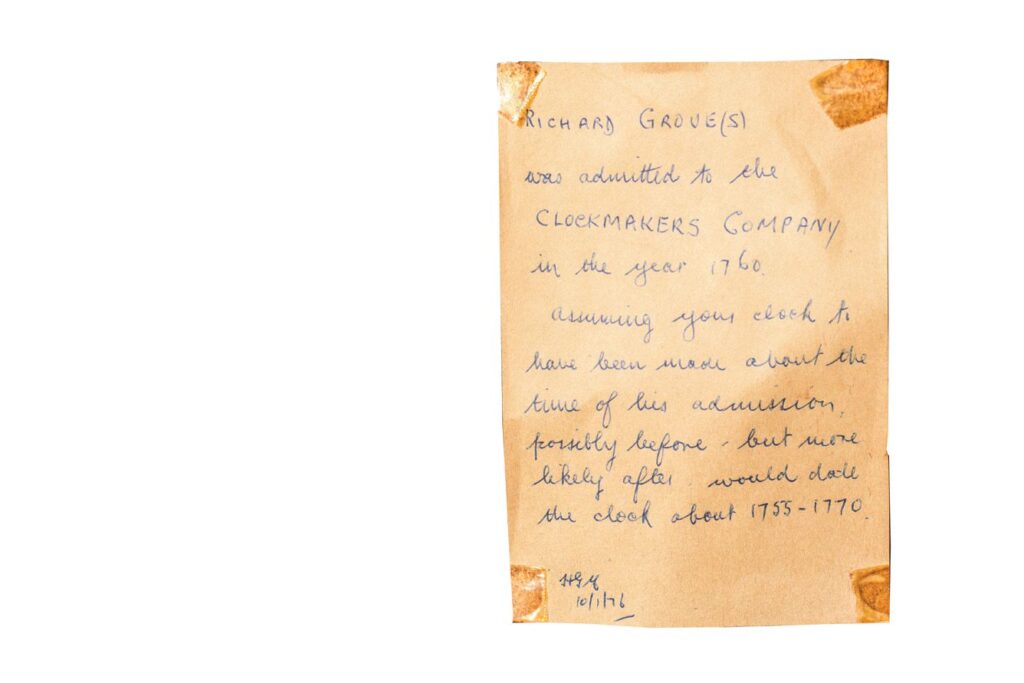 RICHARD GROVE(S)
was admitted to the
CLOCKMAKERS COMPANY
in the year 1760.
Assuming your clock to
have been made about the
time of his admission,
possibly before - but more
likely after. would date
the clock about 1755-1770.
10/1/76